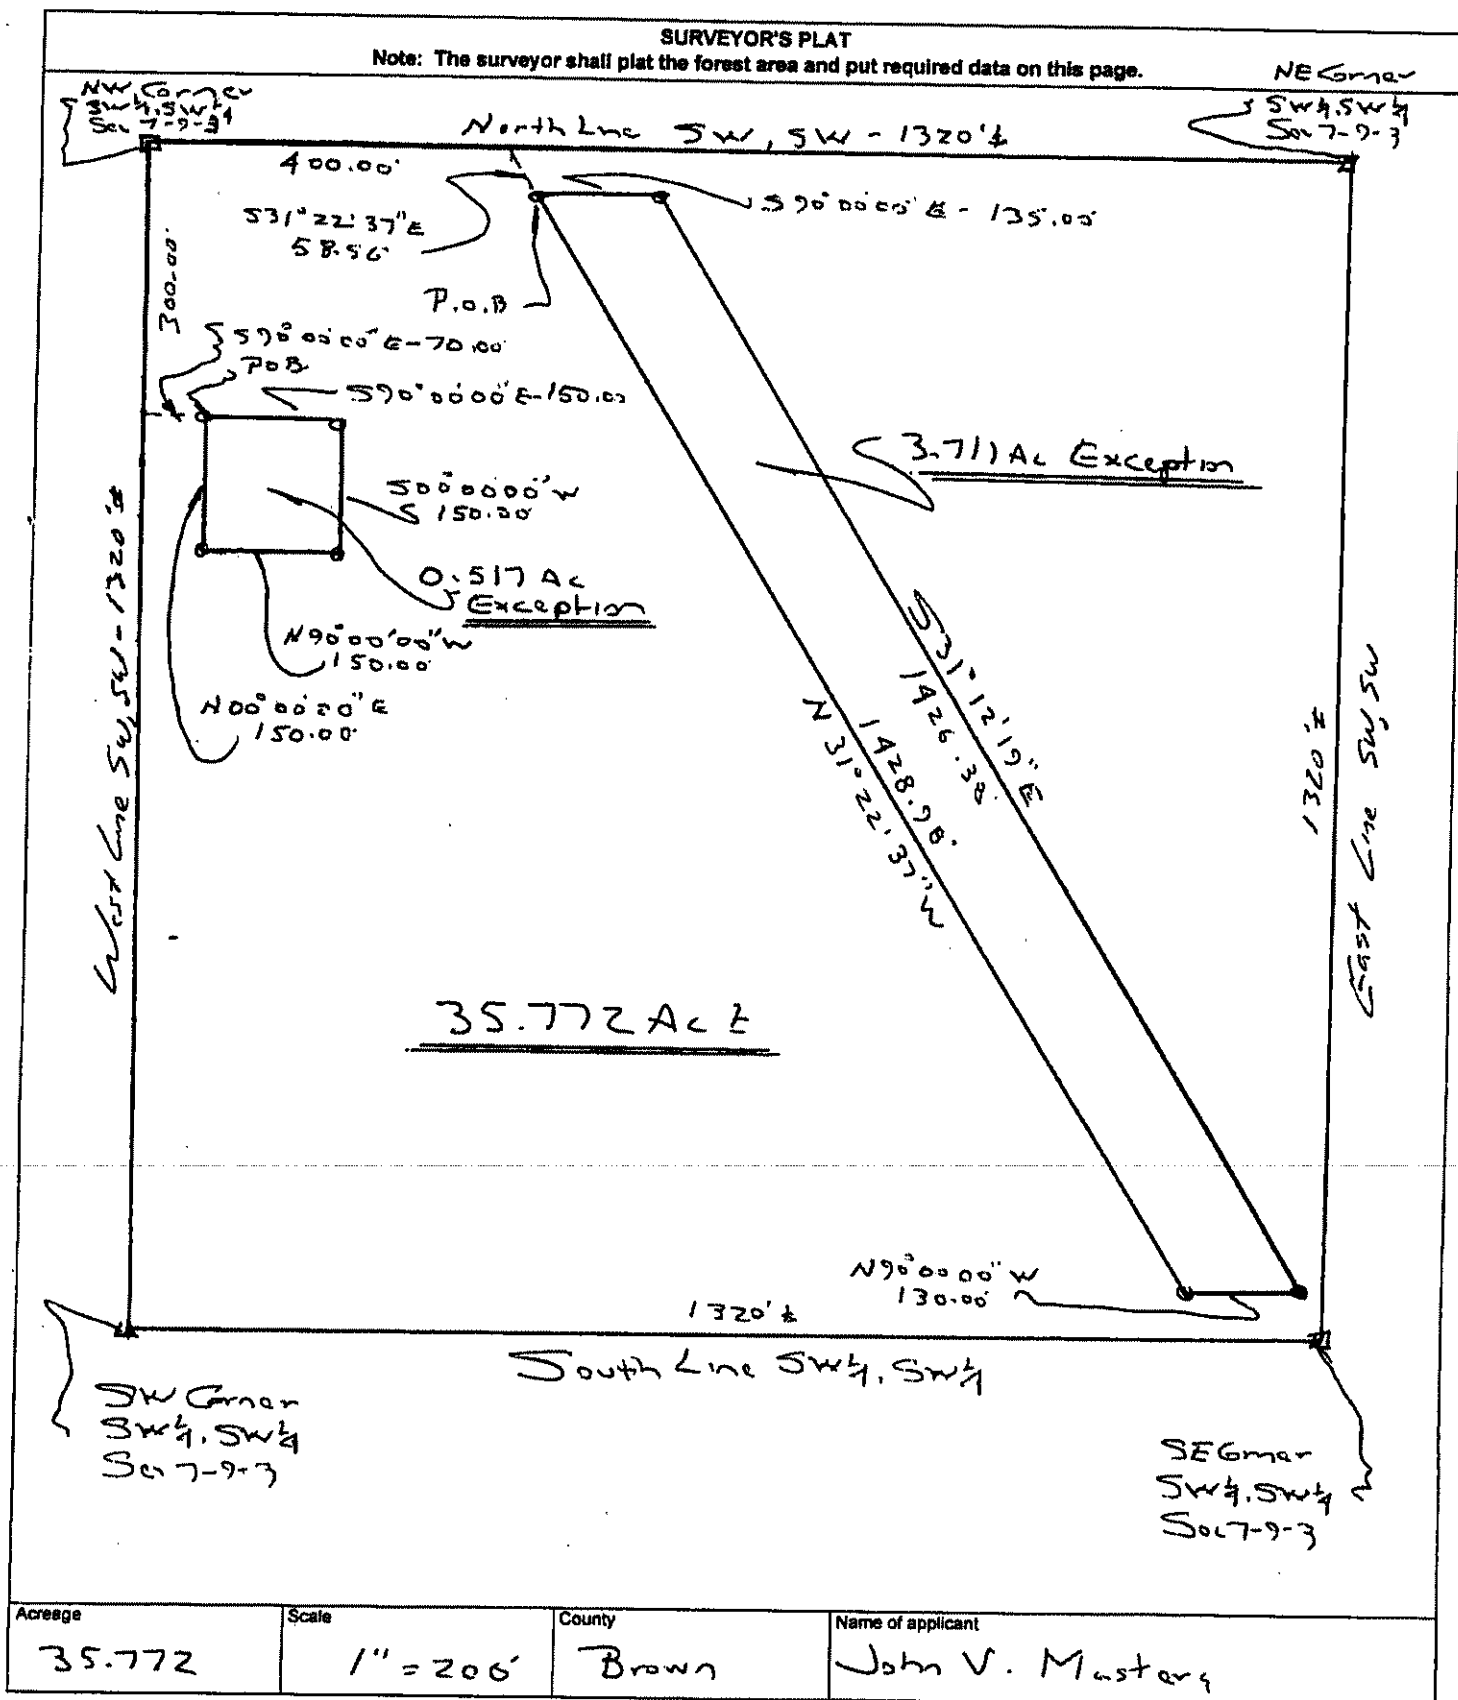 SURVEYOR'S PLAT
Note: The surveyor shall plat the forest area and put required data on this page.
NW Corner
SW¼, SW¼
Sec 7-9-3
NE Corner
SW¼, SW¼
Sec 7-9-3
North Line SW, SW - 1320'±
400.00'
S31°22'37"E
58.56'
S90°00'00"E - 135.00
P.O.B
300.00'
S90°00'00"E-70.00
POB
S90°00'00"E-150.00
3.711 Ac Exception
S00°00'00"W
150.00
0.517 Ac
Exception
N90°00'00"W
150.00
N00°00'00"E
150.00
West Line SW, SW - 1320'±
S31°12'19"E
1426.38'
1428.98'
N31°22'37"W
1320'±
East Line SW, SW
35.772 Ac ±
N90°00'00"W
130.00'
1320'±
South Line SW¼, SW¼
SW Corner
SW¼, SW¼
Sec 7-9-3
SE Corner
SW¼, SW¼
Sec 7-9-3
Acreage
35.772
Scale
1" = 200'
County
Brown
Name of applicant
John V.